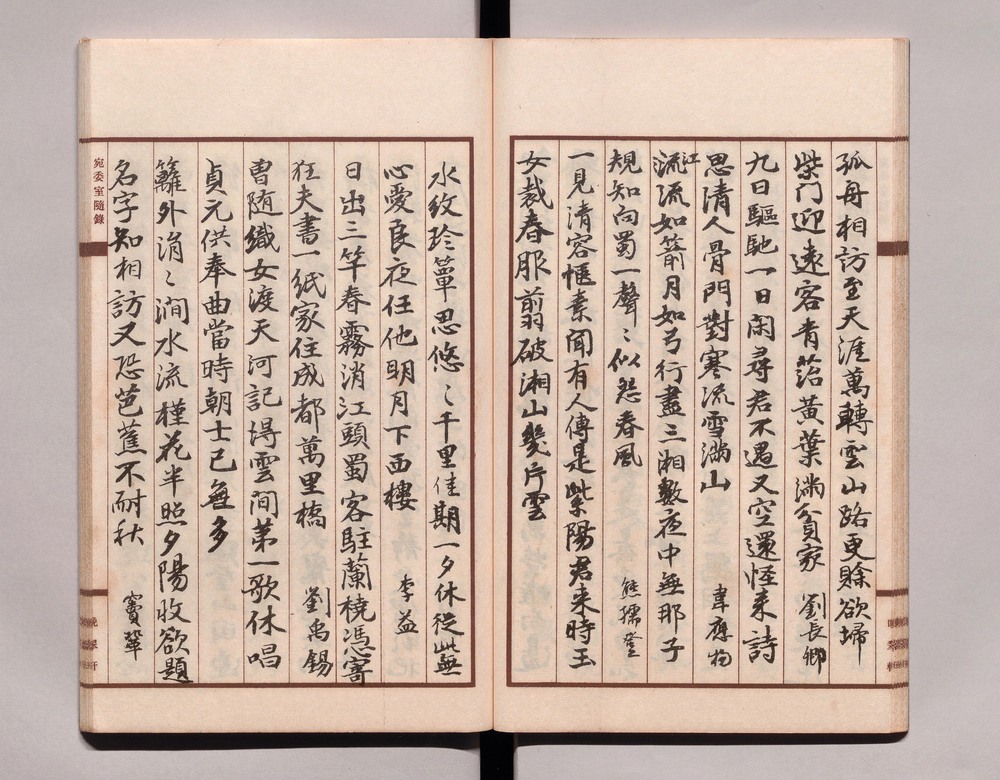 孤舟相訪至天涯萬轉雲山路更賒欲埽
柴門迎遠客青苔黃葉滿貧家 劉長卿
九日驅馳一日閑尋君不遇又空還怪來詩
思清人骨門對寒流雪滿山 韋應物
江流流如箭月如弓行盡三湘數夜中無那子
規知向蜀一聲〻似怨春風 熊孺登
一見清容愜素聞有人傳是紫陽君来時玉
女裁春服剪破湘山幾片雲
水紋珍簟思悠〻千里佳期一夕休從此無
心愛良夜任他明月下西樓 李益
日出三竿春霧消江頭蜀客駐蘭橈憑寄
狂夫書一紙家住成都萬里橋 劉禹錫
曾随織女渡天河記得雲間第一歌休唱
貞元供奉曲當時朝士已無多
籬外涓〻澗水流槿花半照夕陽收欲題
名字知相訪又恐芭蕉不耐秋 竇鞏
宛委室隨錄